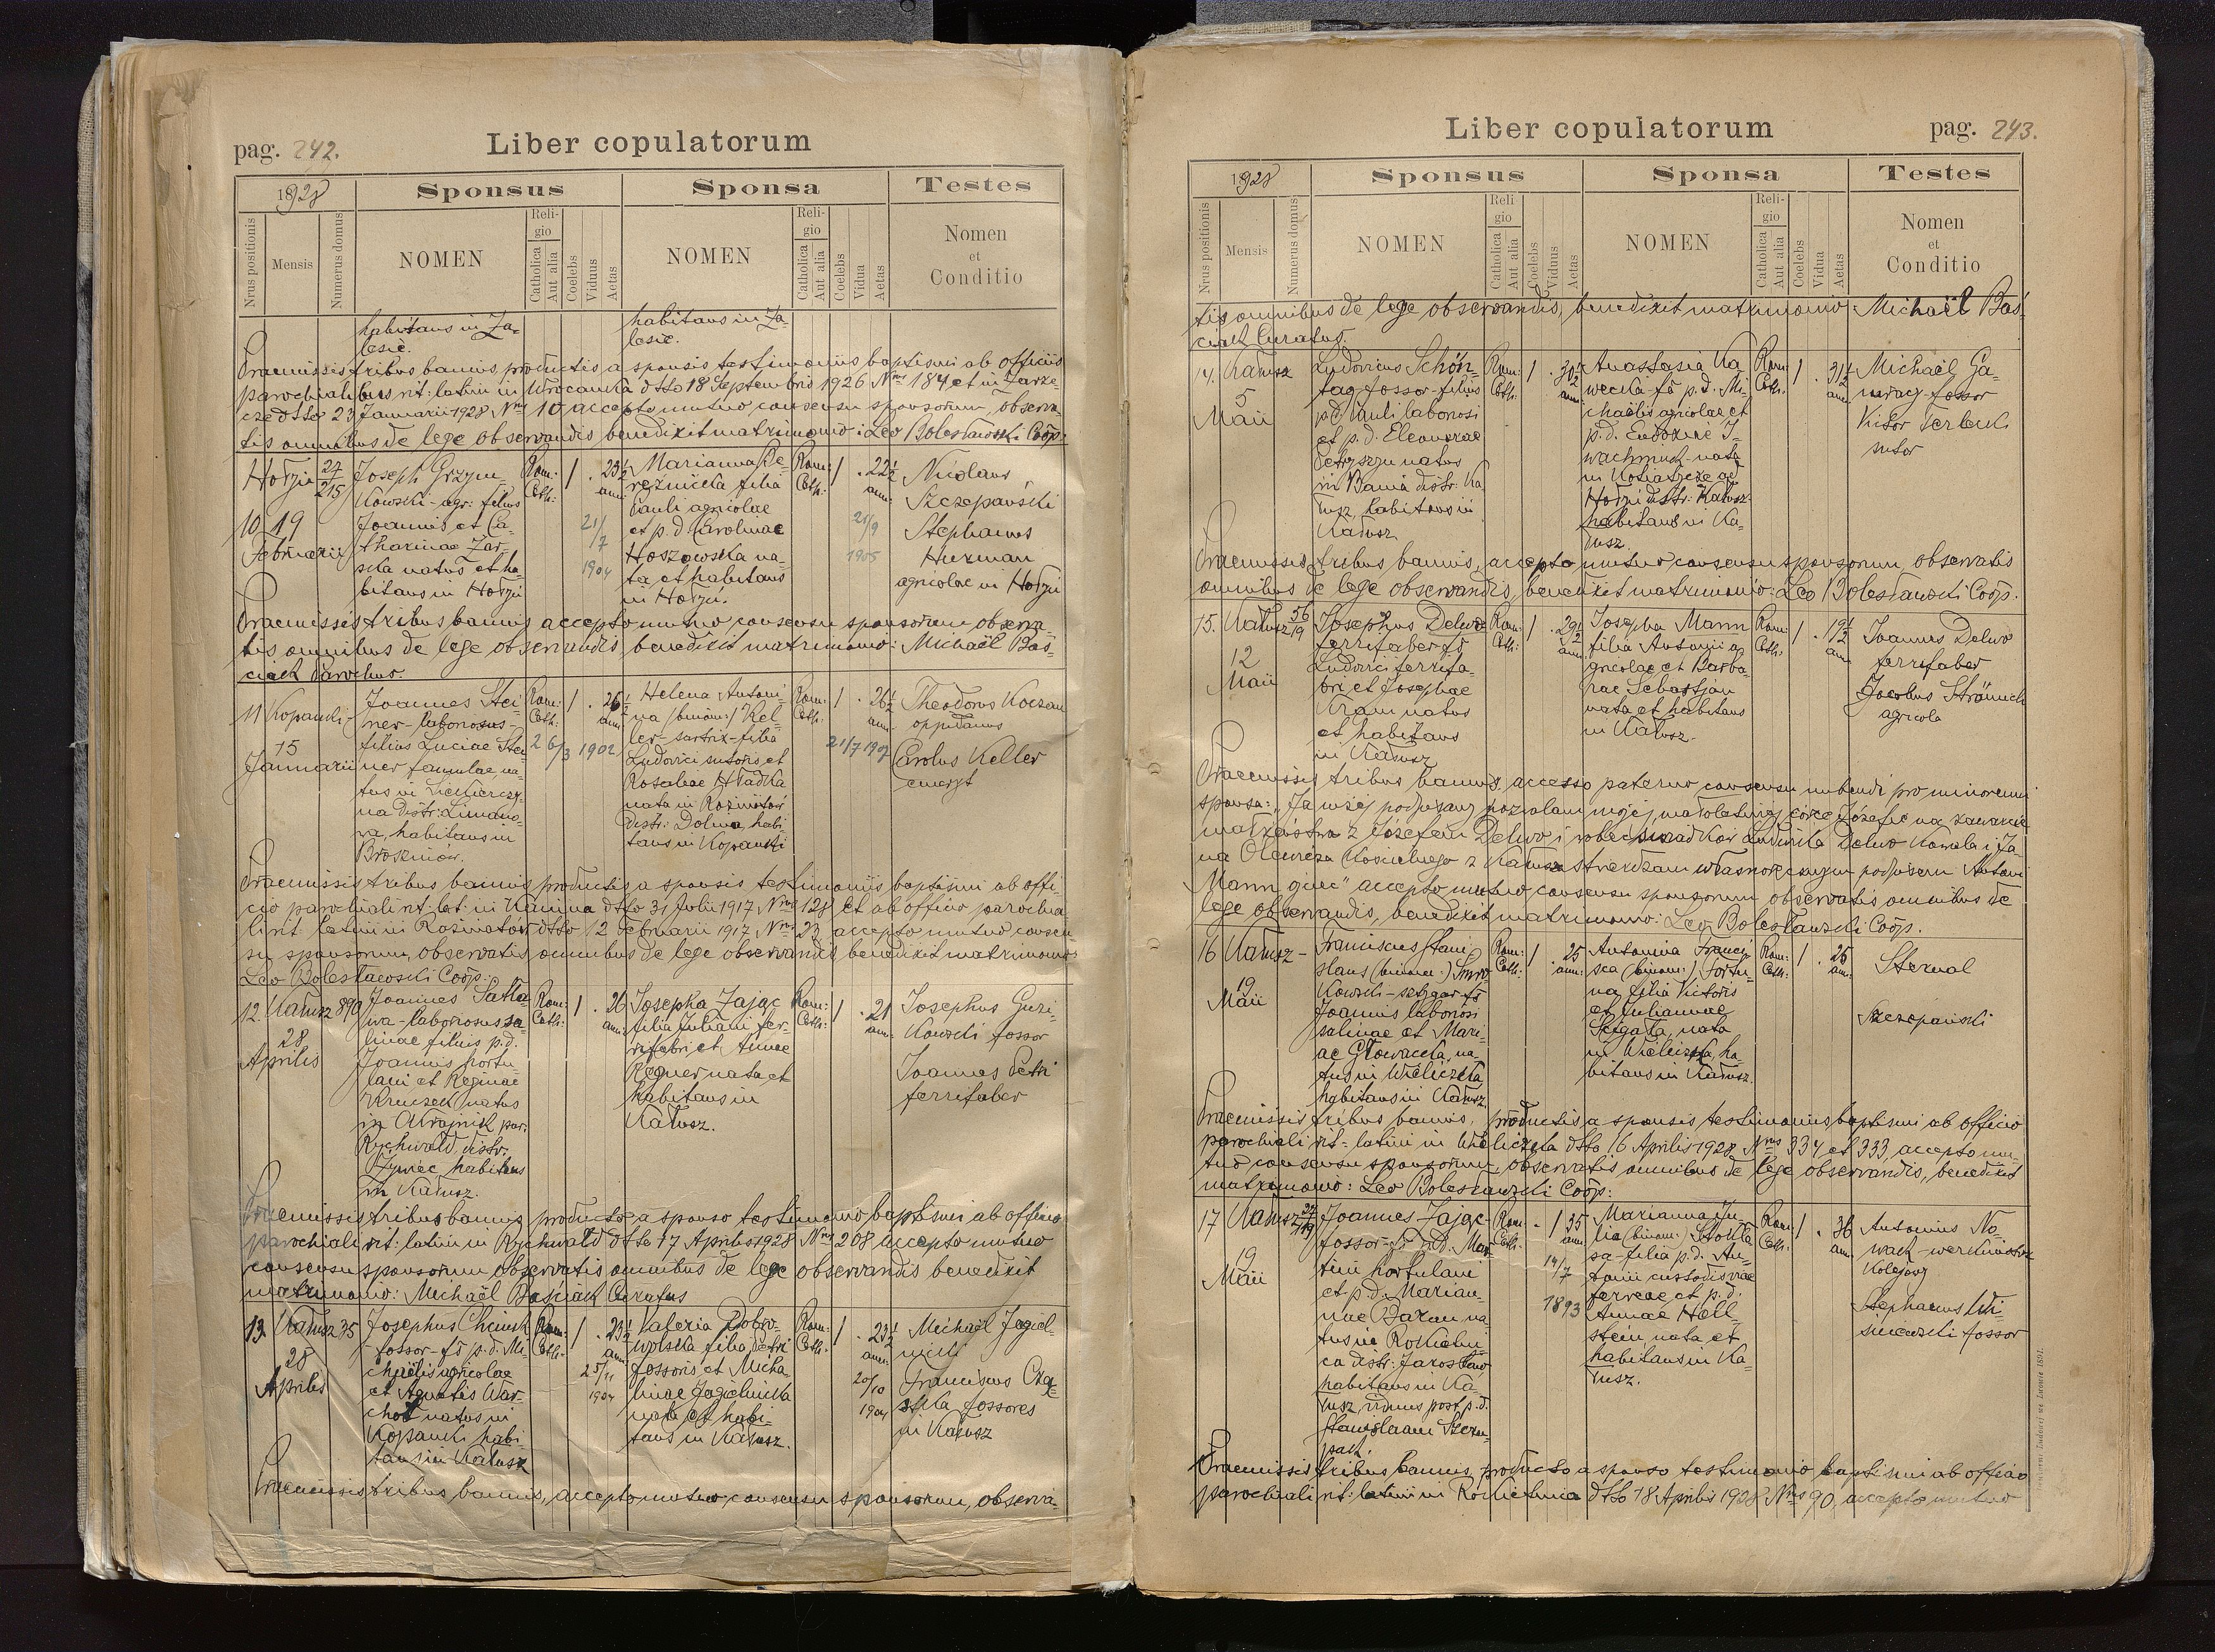 pag. 242.
Liber copulatorum
1928
Sponsus
Sponsa
Testes
Nrus positionis
Mensis
Numerus domus
NOMEN
Religio
Catholica
Aut alia
Coelebs
Viduus
Aetas
NOMEN
Religio
Catholica
Aut alia
Coelebs
Vidua
Aetas
Nomen
et
Conditio
habitans in Za-
lesie.
habitans in Za-
lesie.
Praemissis tribus bannis productis a sponsis testimoniis baptismi ab officiis
parochialibus rit: latini in Wrocanka dtto 18 Septembris 1926 Nrus 184 et in
dtto 23 Januarii 1928 Nrus 10 accepto mutuo consensu sponsorum, observa-
tis omnibus de lege observandis benedixit matrimonio: Leo Bolesławski Coop:
Hołyń 27/215
10 19
Februarii
Joseph Grzym-
kowski - agr: filius
Joannis et Ca-
tharinae Zar-
ska natus et ha-
bitans in Hołyń
Rom: Cath: 1 . 23½ ann:
21/7 1904
Marianna Be-
reznicka filia
Pauli agricolae
et p.d. Carolinae
Hoszowska na-
ta et habitans
in Hołyń.
Rom: Cath: 1 . 22½ ann:
21/9 1905
Nicolaus
Szczepański
Stephanus
Huzman
agricolae in Hołyń
Praemissis tribus bannis accepto mutuo consensu sponsorum observa-
tis omnibus de lege observandis benedixit matrimonio: Michaël Baś-
ciak Parochus.
11 Kopanki
15
Januarii
Joannes Stei-
ner - laboriosus -
filius Luciae Stei-
ner famulae, na-
tus in
na distr: Limano-
wa, habitans in
Broszniów.
Rom: Cath: 1 . 26½ ann:
26/3 1902
Helena Antoni-
na (binom:) Kel-
ler - sartrix - filia
Ludovici sutoris et
Rosaliae Hładka
nata in Rożniatów
distr: Dolina, habi-
tans in Kopanki
Rom: Cath: 1 . 26½ ann:
21/7 1902
Theodorus Koczan
oppidanus
Carolus Keller
emeryt
Praemissis tribus bannis productis a sponsis testimoniis baptismi ab offi-
cio parochiali rit: lat: in Kanina dtto 31 Julii 1917 Nrus 128 et ab officio parochia-
li rit: latini in Rożniatów dtto 12 Februarii 1917 Nrus 23 accepto mutuo consen-
su sponsorum, observatis omnibus de lege observandis benedixit matrimonio:
Leo Bolesławski Coop:
12. Kałusz 890
28
Aprilis
Joannes Satła-
wa - laboriosus sa-
linae filius p.d.
Joannis hortu-
lani et Reginae
Kruczek natus
in Okrajnik par:
Rychwałd distr:
Żywiec habitans
in Kałusz.
Rom: Cath: 1 . 26 ann:
Josepha Zając
filia Juliani fer-
rifabri et Annae
Regner nata et
habitans in
Kałusz.
Rom: Cath: 1 . 21 ann:
Josephus Guzi-
kowski fossor
Joannes Petri
ferrifaber
Praemissis tribus bannis producto a sponso testimonio baptismi ab officio
parochiali rit: latini in Rychwałd dtto 17 Aprilis 1928 Nrus 208 accepto mutuo
consensu sponsorum observatis omnibus de lege observandis benedixit
matrimonio: Michaël Baściak Curatus
13. Kałusz 35
28
Aprilis
Josephus
fossor - fs p.d. Mi-
chaëlis agricolae
et Agnetis War-
choł natus in
Kopanki habi-
tans in Kałusz
Rom: Cath: 1 . 23½ ann:
25/11 1904
Valeria Dobro-
wolska filia Petri
fossoris et Micha-
linae Jagielnicka
nata et habi-
tans in Kałusz.
Rom: Cath: 1 . 23½ ann:
20/10 1904
Michaël Jagiel-
nicki
Franciscus
fossores
in Kałusz
Praemissis tribus bannis, accepto mutuo consensu sponsorum, observa-
Liber copulatorum
pag. 243.
1928
Sponsus
Sponsa
Testes
Nrus positionis
Mensis
Numerus domus
NOMEN
Religio
Catholica
Aut alia
Coelebs
Viduus
Aetas
NOMEN
Religio
Catholica
Aut alia
Coelebs
Vidua
Aetas
Nomen
et
Conditio
tis omnibus de lege observandis, benedixit matrimonio Michaël Baś-
ciak Curatus.
14. Kałusz
5
Maii
Ludovicus Schön-
tag, fossor - filius
p.d. Pauli laboriosi
et p.d. Eleonorae
Petryszyn natus
in Bania distr: Ka-
łusz, habitans in
Kałusz
Rom: Cath: 1 . 30½ ann:
Anastasia Ka-
wecka fa p.d. Mi-
chaëlis agricolae et
p.d. Eudoxiae I-
wachniuk - nata
in
Hołyń distr: Kałusz
habitans in Ka-
łusz.
Rom: Cath: 1 . 31½ ann:
Michaël Ga-
fossor
Victor Terlecki
sutor
Praemissis tribus bannis, accepto mutuo consensu sponsorum, observatis
omnibus de lege observandis, benedixit matrimonio: Leo Bolesławski Coop.
15. Kałusz 56/19
12
Maii
Josephus Delwo
ferrifaber fs
Ludovici ferrifa-
bri et Josephae
Kram natus
et habitans
in Kałusz
Rom: Cath: 1 . 29½ ann:
Josepha Mann
filia Antonii a-
gricolae et Barba-
rae Sebastjan
nata et habitans
in Kałusz.
Rom: Cath: 1 . 19½ ann:
Joannes Delwo
ferrifaber
Jacobus
agricola
Praemissis tribus bannis, accesso paterno consensu nubendi pro minorenni
sponsa: "Ja niżej podpisany pozwalam mojej małoletniej córce Józefie na zawarcie
małżeństwa z Józefem Delwo i wobec świadków Ludwika Delwo Kowala i Ja-
na kościelnego z Kałusza stwierdzam własnoręcznym podpisem Antoni
Mann ojciec" accepto mutuo consensu sponsorum observatis omnibus de
lege observandis, benedixit matrimonio: Leo Bolesławski Coop.
16 Kałusz -
19
Maii
Franciscus Stani-
slaus (binom:)
sztygar fs
Joannis laboriosi
salinae et Mari-
ae Głowacka, na-
tus in Wieliczka
habitans in Kałusz.
Rom: Cath: 1 . 25 ann:
Antonina Franci-
sca (binom:) Fortu-
na filia Victoris
et Juliannae
nata
in Wieliczka, ha-
bitans in Kałusz.
Rom: Cath: 1 . 26 ann:
Sternal
Szczepański
Praemissis tribus bannis, productis a sponsis testimoniis baptismi ab officio
parochiali rit: latini in Wieliczka dtto 16 Aprilis 1928 Nrus 334 et 333, accepto mu-
tuo consensu sponsorum, observatis omnibus de lege observandis, benedixit
matrimonio: Leo Bolesławski Coop:
17 Kałusz
19
Maii
Joannes Zając -
fossor - fs p.d. Mar-
tini hortulani
et p.d. Marian-
nae Baran na-
tus in Rokietni-
ca distr: Jarosław
habitans in Ka-
łusz, viduus post p.d.
Stanislaam Szczu-
pak.
Rom: Cath: - 1 35 ann:
14/7 1893
Marianna Ju-
lia (binom:) Stokła-
sa - filia p.d. An-
tonii custodis viae
ferreae et p.d.
Annae Holl-
stein nata et
habitans in Ka-
łusz.
Rom: Cath: 1 . 36 ann:
Antonius No-
wak - werkmistrz
kolejowy
Stephanus Wi-
śniewski fossor
Praemissis tribus bannis, producto a sponso testimonio baptismi ab officio
parochiali rit: latini in Rokietnica dtto 18 Aprilis 1928 Nrus 90, accepto mutuo